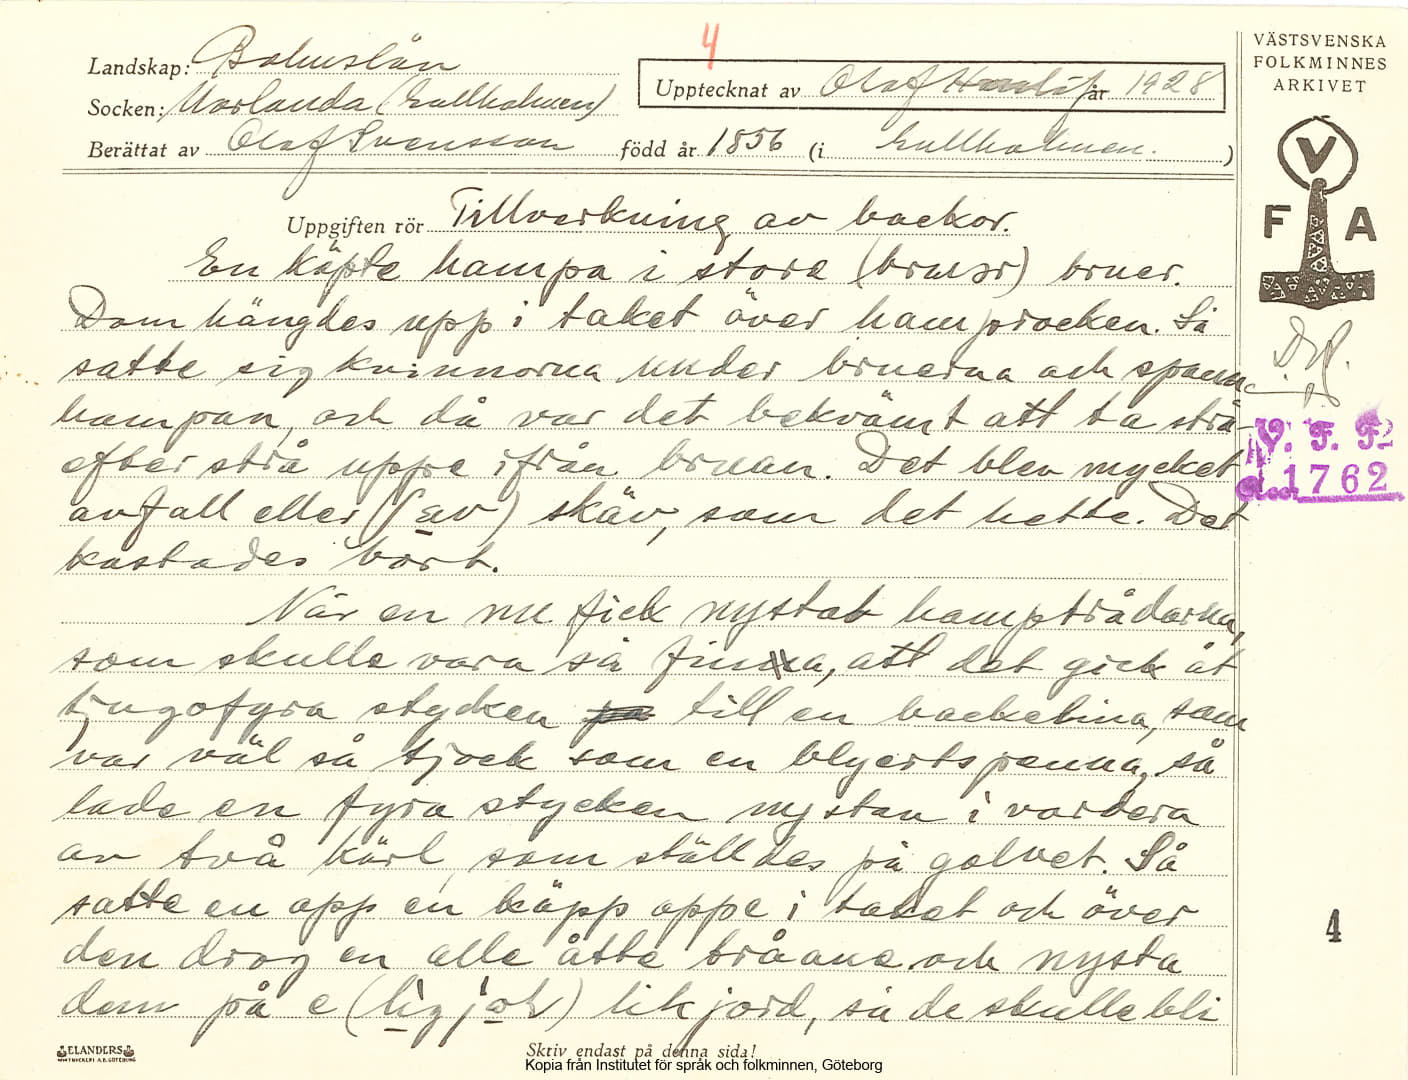 4
Landskap: Bohuslän
Socken: Morlanda (Gullholmen)
Upptecknat av Olof Hasslöf år 1928
Berättat av Olof Svensson född år 1856 (i Gullholmen.)
VÄSTSVENSKA
FOLKMINNES
ARKIVET
V
F A
Uppgiften rör Tillverkning av backor.
En köpte hampa i store bruer.
Dom hängdes upp i taket över hamprocken. Så
satte sig kvinnorna under bruerna och spann
hampan, och då var det bekvämt att ta strå
efter strå uppe ifrån bruan. Det blev mycket
avfall eller skäv, som det hette. Det
kastades bort.
V. F. F.
1762
När en nu fick nystat hamptrådarna,
som skulle vara så fina, att det gick åt
tjugofyra stycken till en backelina, som
var väl så tjock som en blyertspenna, så
lade en fyra stycken nystan i vardera
av två kärl, som ställdes på golvet. Så
satte en opp en käpp oppe i taket och över
den drog en alle åtte tråane och nysta
dem på e likjord, så de skulle bli
4
ELANDERS
Skriv endast på denna sida!
Kopia från Institutet för språk och folkminnen, Göteborg